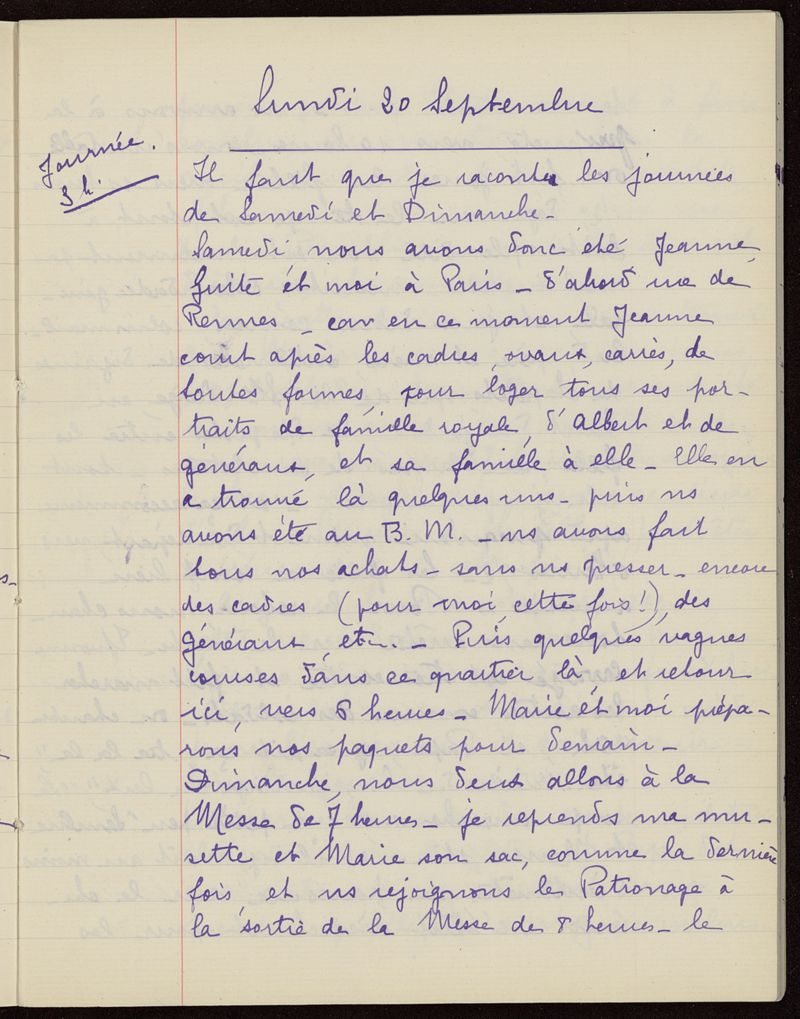 Lundi 20 Septembre
Journée.
3 h.
Il faut que je raconte les journées
de Samedi et Dimanche -
Samedi nous avons donc été Jeanne,
Guite et moi à Paris - d'abord rue de
Rennes - car en ce moment Jeanne
court après les cadres, ovaux, carrés, de
toutes formes, pour loger tous ses por-
traits de famille royale, d'Albert et de
généraux, et sa famille à elle - Elle en
a trouvé là quelques uns - puis ns
avons été au B. M. - ns avons fait
tous nos achats - sans ns presser - encore
des cadres (pour moi, cette fois !), des
généraux, etc. - Puis quelques vagues
courses dans ce quartier là et retour
ici, vers 6 heures - Marie et moi prépa-
rons nos paquets pour demain -
Dimanche, nous deux allons à la
Messe de 7 heures - je reprends ma mu-
sette et Marie son sac, comme la dernière
fois, et ns rejoignons le Patronage à
la sortie de la Messe de 8 heures - le